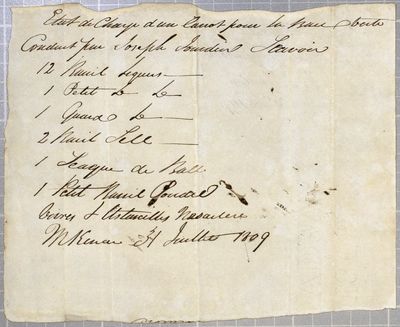 Etat de Charge d'un Canot pour la Baie Verte
Conduit par Joseph Scavoir
12 Baril Liqurs —
1 Petit do do
1 Quard do —
2 Baril Sell —
1 Sacque de Ball
1 Petit Baril Poudre
Vivres & Ustancilles
McKinac 31 Juillet 1809